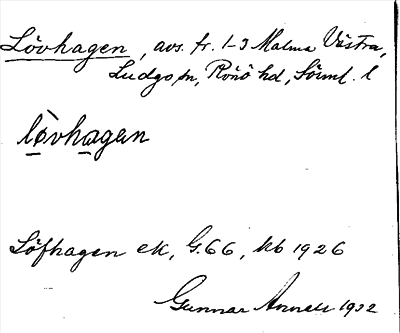 Lövhagen, avs. fr. 1-3 Malma Västra,
Ludgo sn, Rönö hd, Söml. l
lòvhagen
Löfhagen ek, G.66, kb 1926
Gunnar 1932